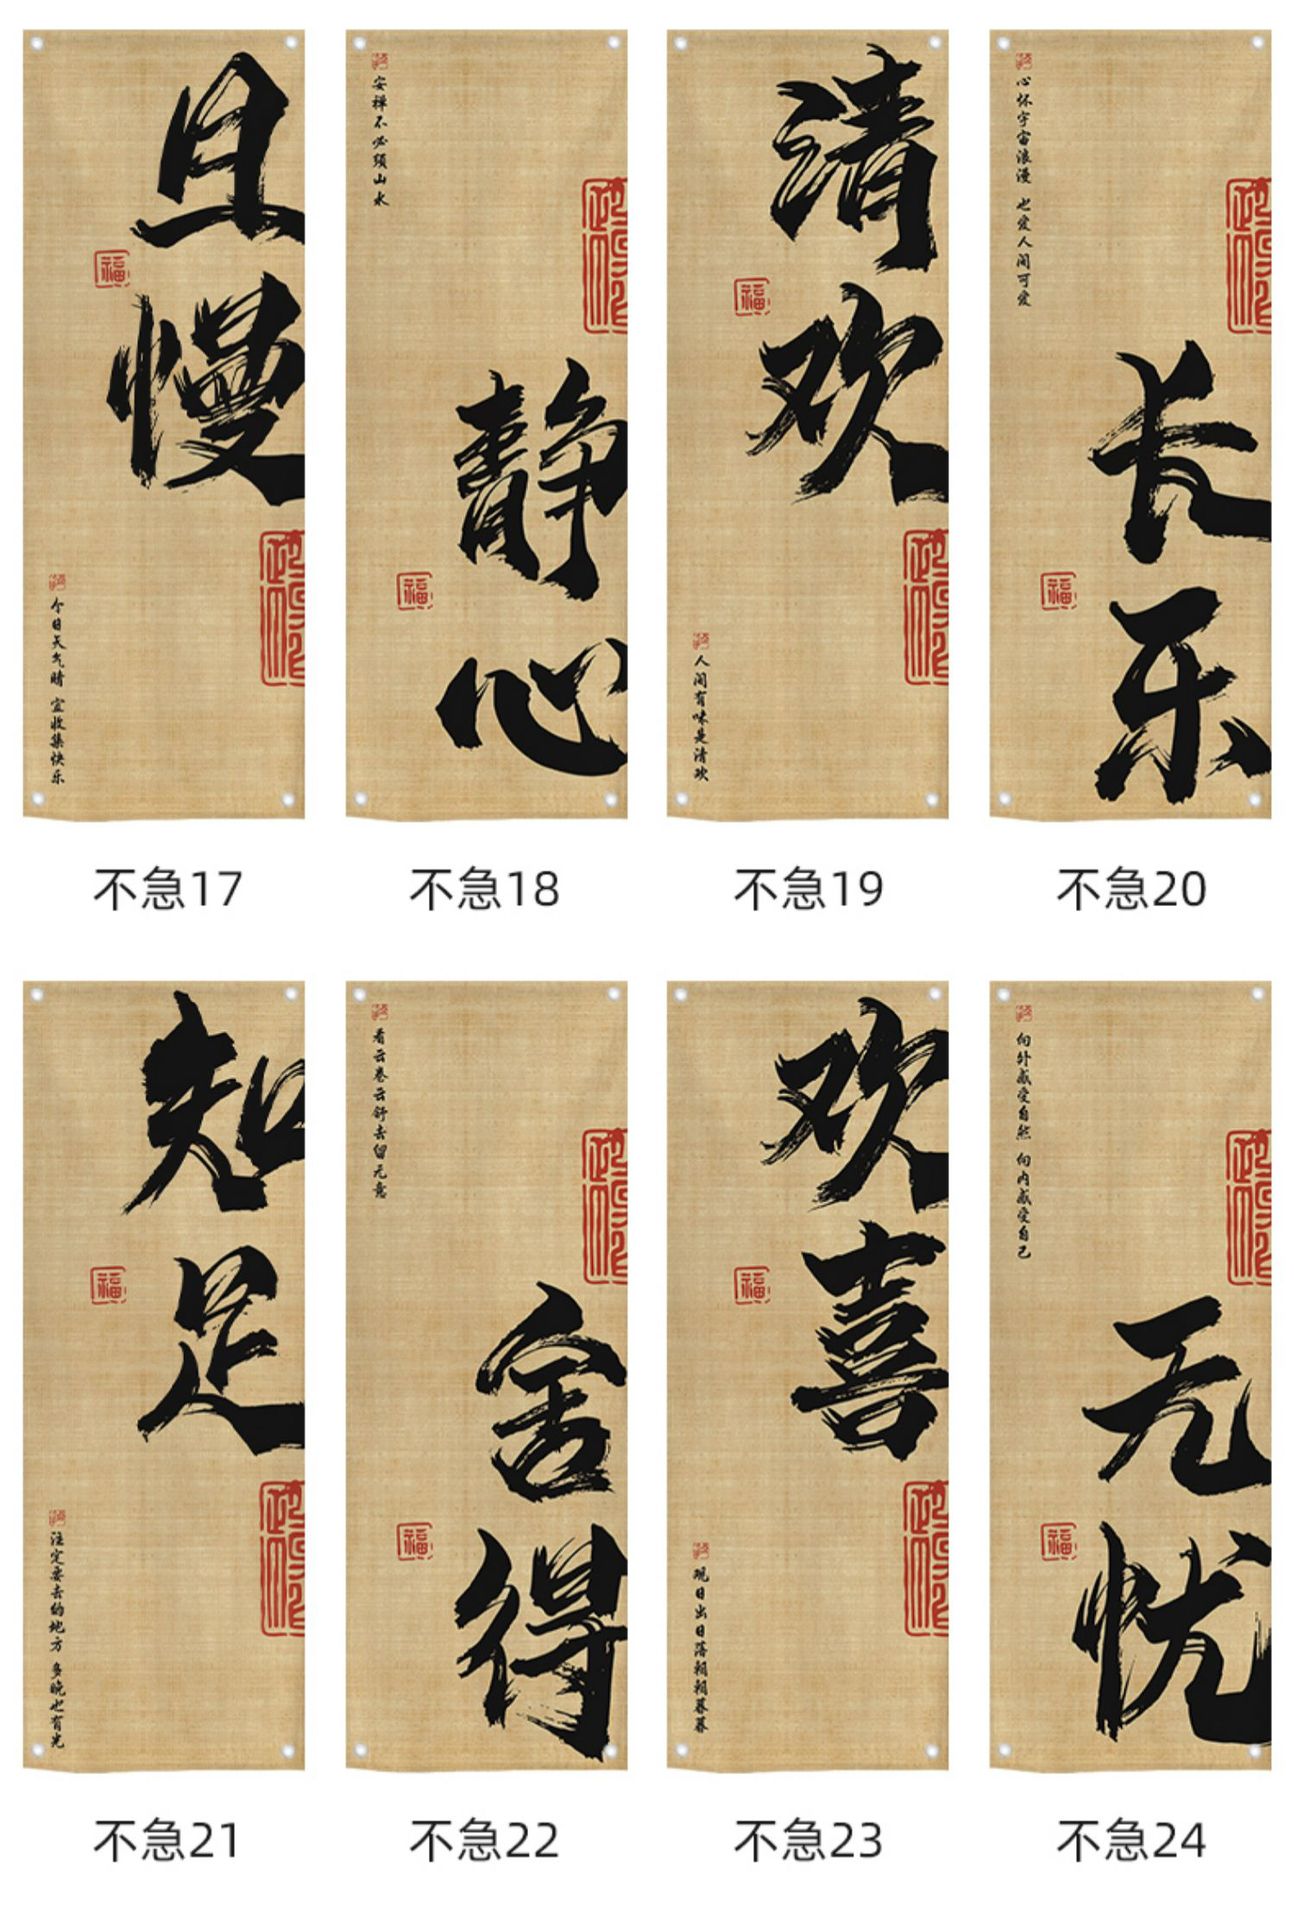 且慢
福
今日天气晴 宜收集快乐
安禅不必须山水
静心
福
清欢
福
人间有味是清欢
心怀宇宙浪漫 也爱人间可爱
长乐
福
不急17
不急18
不急19
不急20
知足
福
注定要去的地方 多晚也有光
看云卷云舒去留无意
舍得
福
欢喜
福
观日出日落朝朝暮暮
向外感受自然 向内感受自己
无忧
福
不急21
不急22
不急23
不急24